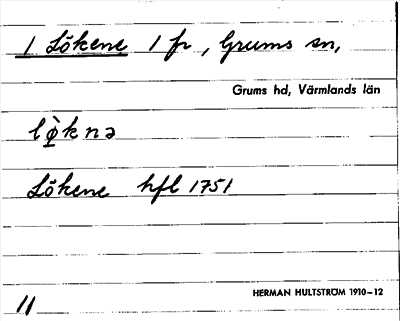 1 Lökene 1 fr, Grums sn,
Grums hd, Värmlands län
lø̀knə
Lökene hfl 1751
HERMAN HULTSTRÖM 1910–12
11